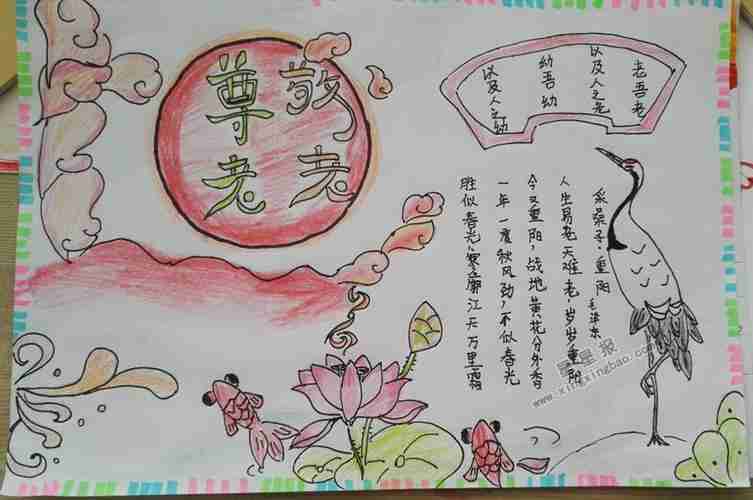 敬老
尊老
老吾老
以及人之老
幼吾幼
以及人之幼
采桑子·重阳 毛泽东
人生易老天难老,岁岁重阳
今又重阳,战地黄花分外香
一年一度秋风劲,不似春光
胜似春光,寥廓江天万里霜
星星报
www.xingxingbao.com